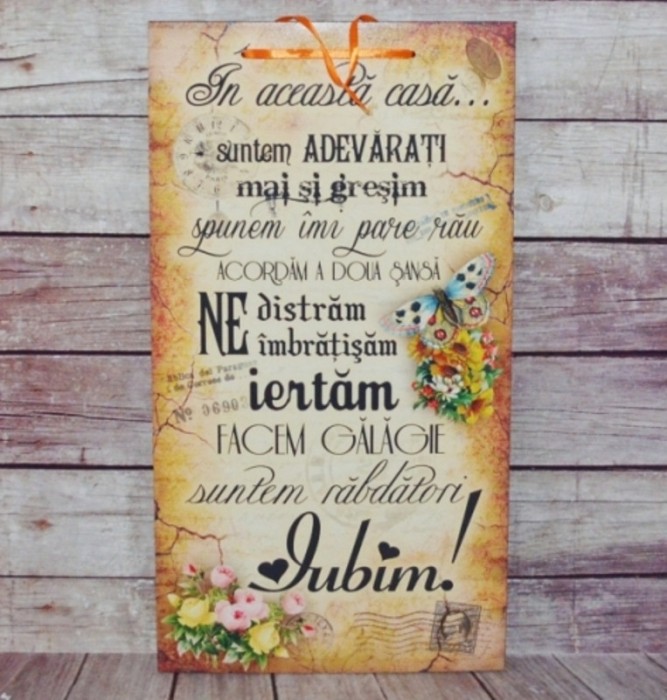 În această casă...
suntem ADEVĂRAȚI
mai și greșim
spunem îmi pare rău
ACORDĂM A DOUA ȘANSĂ
NE distrăm
îmbrățișăm
iertăm
FACEM GĂLĂGIE
suntem răbdători
Iubim!